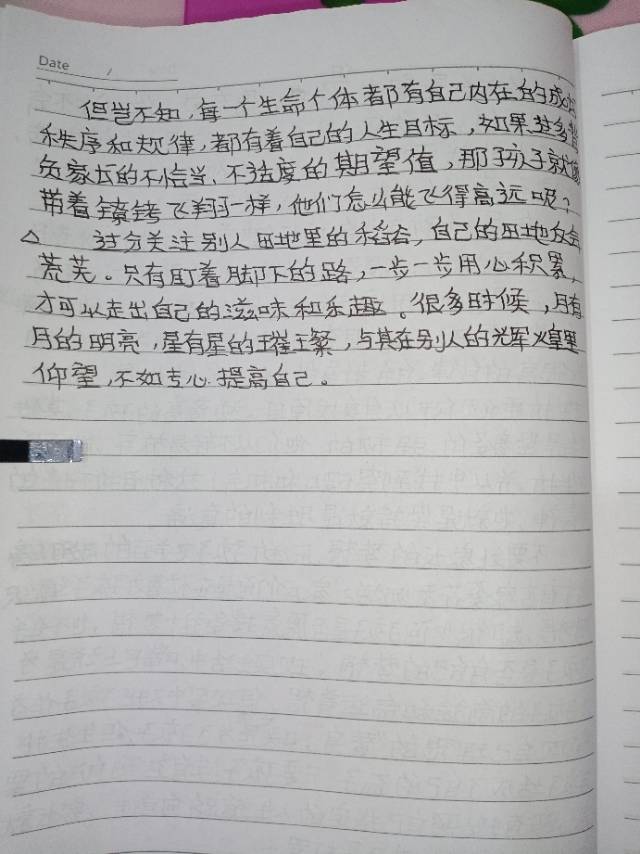 Date /
但岂不知，每一个生命个体都有自己内在的成长
秩序和规律，都有着自己的人生目标，如果过多背
负家长的不恰当、不适度的期望值，那孩子就像
带着镣铐飞翔一样，他们怎么能飞得高远呢？
△ 过分关注别人田地里的稻谷，自己的田地龙会
荒芜。只有盯着脚下的路，一步一步用心积累，
才可以走出自己的滋味和乐趣。很多时候，月有
月的明亮，星有星的璀璨，与其在别人的光辉火里
仰望，不如专心提高自己。